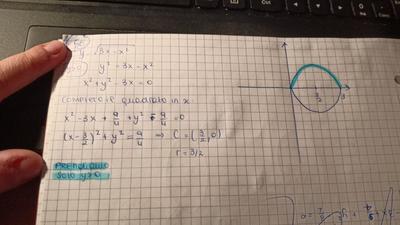 3x - x²
y² = 3x - x²
x² + y² - 3x = 0
COMPLETO IL QUADRATO in x:
x² - 3x + 9/4 + y² - 9/4 = 0
(x - 3/2)² + y² = 9/4 ⇒ C = (3/2, 0)
r = 3/2
PRENDIAMO
SOLO y≥0
3/2
3